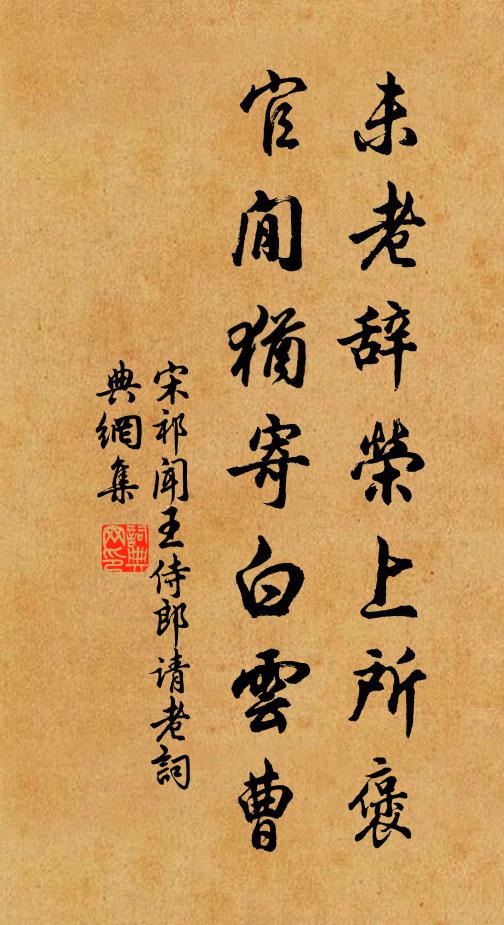 未老辞榮上所褒
官閒猶寄白雲曹
宋祁聞王侍郎请老詞
典網集
詞典
网印